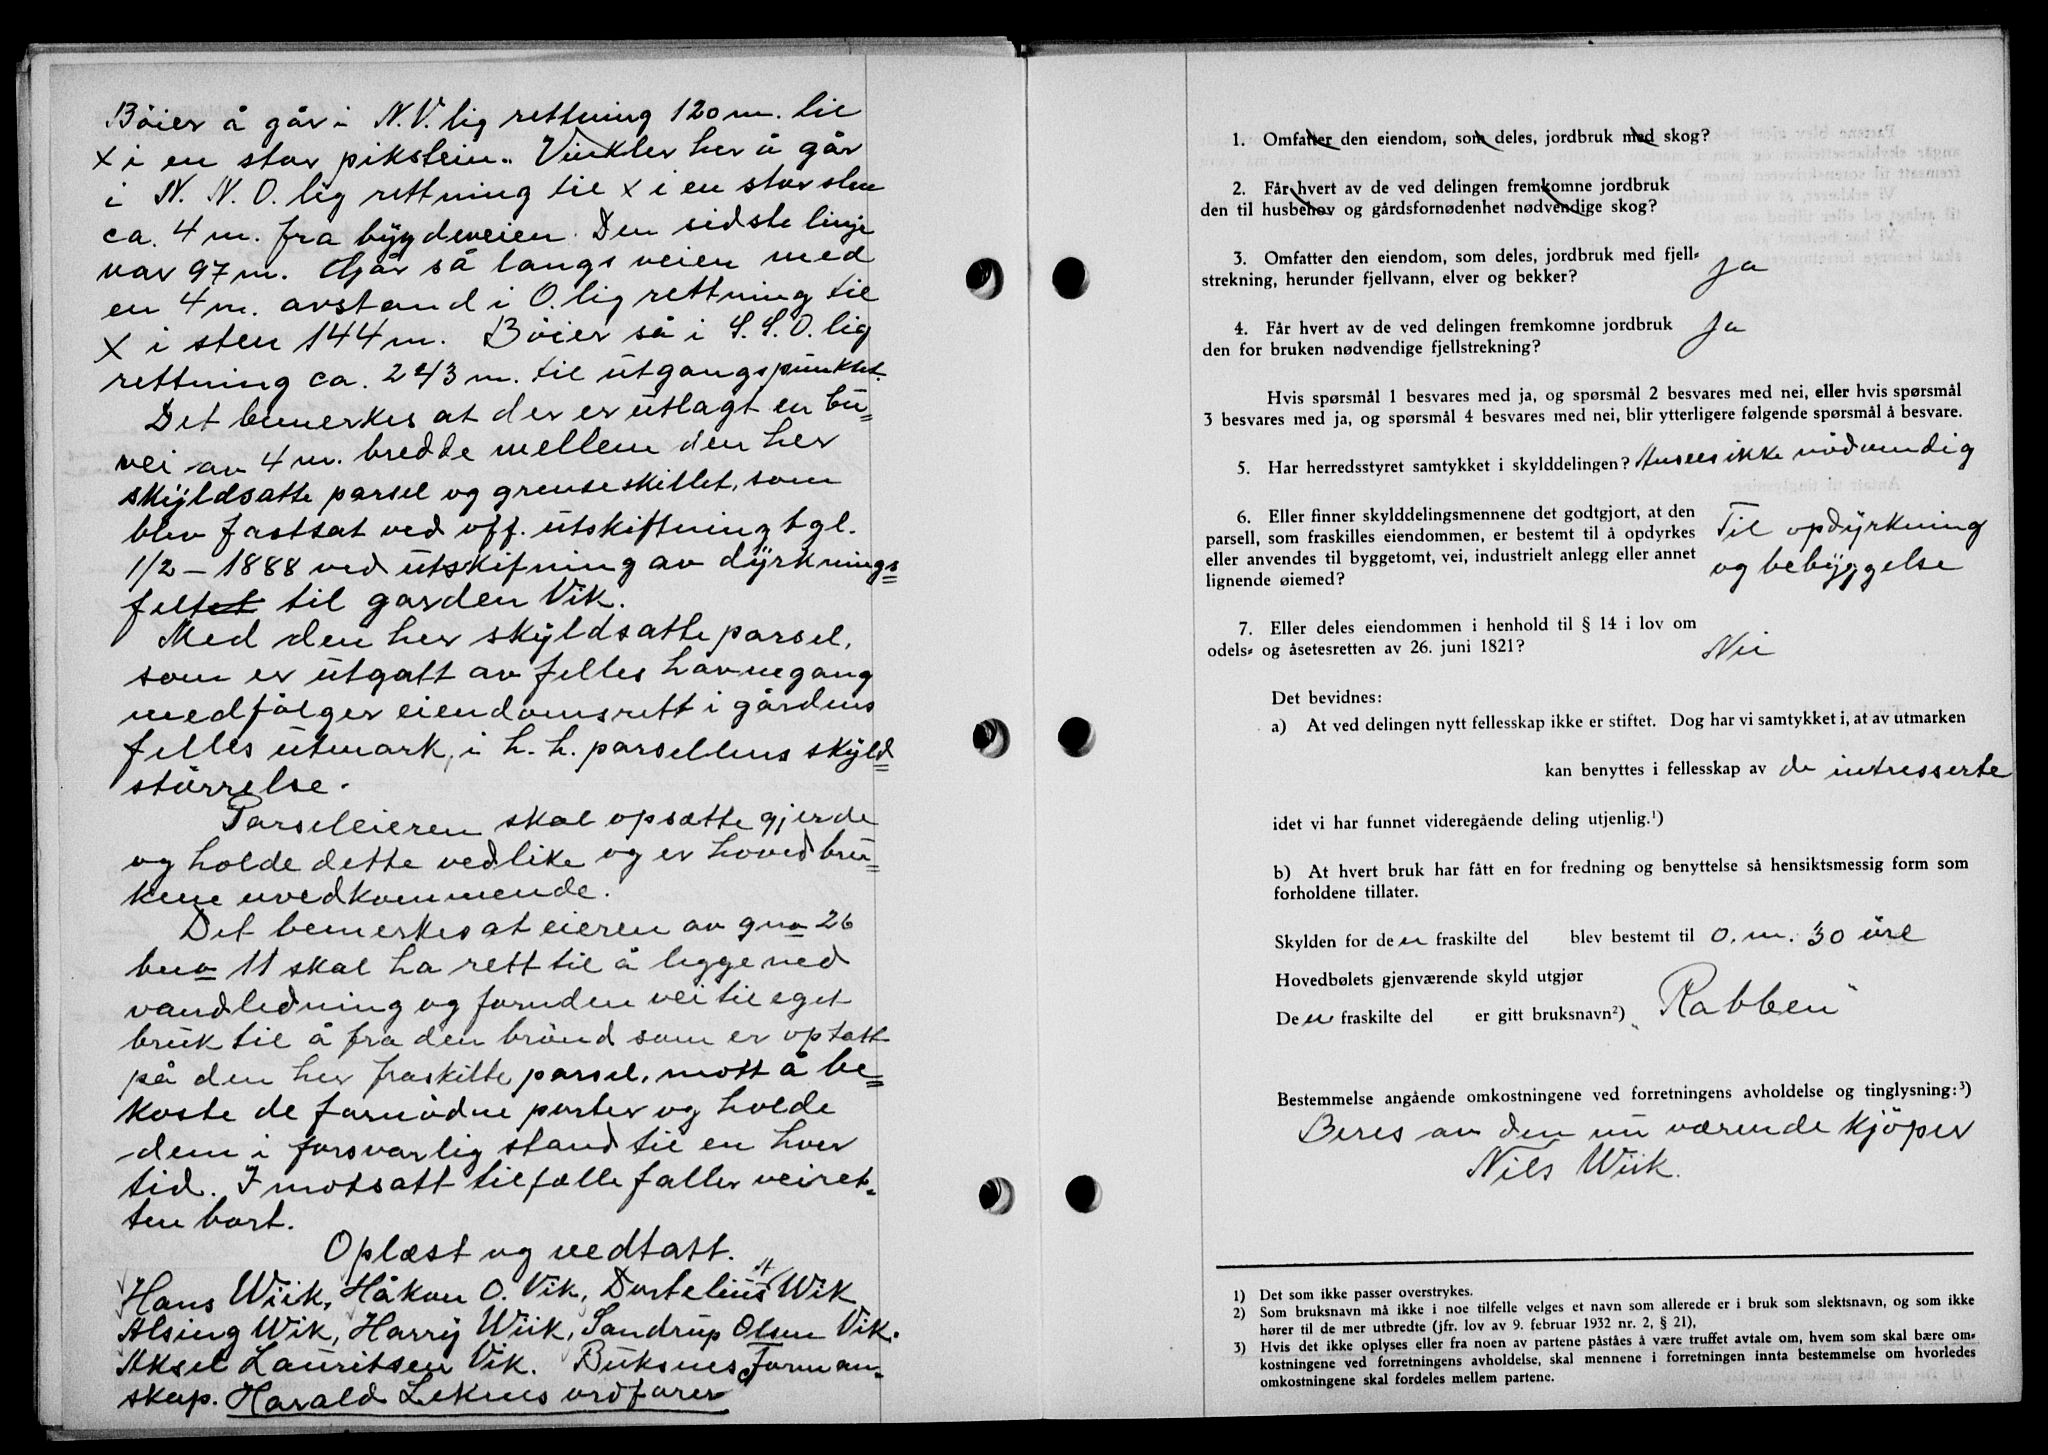 Böier å går i N.V.lig rettning 120 m. til
x i en stor pikstein. Vinkler her å går
i N. N. O. lig rettning til x i en stor sten
ca. 4 m. fra bygdeveien. Den sidste linje
var 97 m. Går så langs veien med
en 4 m. avstand i O. lig rettning til
x i sten 144 m. Böier så i S. S. O. lig
rettning ca. 243 m. til utgangspunktet.
Det bemerkes at der er utlagt en bu=
vei av 4 m. bredde mellem den her
skyldsatte parsel og grenseskillet, som
blev fastsat ved off. utskiftning tgl.
1/2 - 1888 ved utskifning av dyrknings=
feltet til garden Vik.
Med den her skyldsatte parsel,
som er utgatt av felles havnegang
medfölger eiendomsrett i gårdens
felles utmark, i h. h. parsellens skyld=
störrelse.
Parseleieren skal opsætte gjerde
og holde dette vedlike og er hovedbru=
kene uvedkommende.
Det bemerkes at eieren av gno 26
bno 11 skal ha rett til å legge ned
vandledning og fornöden vei til eget
bruk til å fra den brönd som er optatt
på den her fraskilte parsel, mott å be=
koste de fornödne porter og holde
dem i forsvarlig stand til en hver
tid. I motsatt tilfælle faller veiret-
ten bort.
Oplæst og vedtatt.
Hans Wiik, Håkon O. Vik, Dortelius H Wik
Alsing Wik, Harry Wiik, Sandrup Olsen Vik.
Aksel Lauritsen Vik. Buksnes Forman-
skap. Harald Leknes ordförer
1. Omfatter den eiendom, som deles, jordbruk med skog?
2. Får hvert av de ved delingen fremkomne jordbruk
den til husbehov og gårdsfornødenhet nødvendige skog?
3. Omfatter den eiendom, som deles, jordbruk med fjell=
strekning, herunder fjellvann, elver og bekker? Ja
4. Får hvert av de ved delingen fremkomne jordbruk Ja
den for bruken nødvendige fjellstrekning?
Hvis spørsmål 1 besvares med ja, og spørsmål 2 besvares med nei, eller hvis spørsmål
3 besvares med ja, og spørsmål 4 besvares med nei, blir ytterligere følgende spørsmål å besvare.
5. Har herredsstyret samtykket i skylddelingen? Ansees ikke nödvendig
6. Eller finner skylddelingsmennene det godtgjort, at den
parsell, som fraskilles eiendommen, er bestemt til å opdyrkes Til opdyrkning
eller anvendes til byggetomt, vei, industrielt anlegg eller annet
lignende øiemed? og bebyggelse
7. Eller deles eiendommen i henhold til § 14 i lov om
odels= og åsetesretten av 26. juni 1821? Nei
Det bevidnes:
a) At ved delingen nytt fellesskap ikke er stiftet. Dog har vi samtykket i, at av utmarken
kan benyttes i fellesskap av de intresserte
idet vi har funnet videregående deling utjenlig.¹)
b) At hvert bruk har fått en for fredning og benyttelse så hensiktsmessig form som
forholdene tillater.
Skylden for den fraskilte del blev bestemt til 0. m. 30 öre
Hovedbølets gjenværende skyld utgjør
Den fraskilte del er gitt bruksnavn²) „Rabben"
Bestemmelse angående omkostningene ved forretningens avholdelse og tinglysning:³)
Beres av den nu værende kjöper
Nils Wiik.
1) Det som ikke passer overstrykes.
2) Som bruksnavn må ikke i noe tilfelle velges et navn som allerede er i bruk som slektsnavn, og som ikke
hører til de mer utbredte (jfr. lov av 9. februar 1932 nr. 2, § 21),
3) Hvis det ikke oplyses eller fra noen av partene påståes å være truffet avtale om, hvem som skal bære om=
kostningene ved forretningens avholdelse, skal mennene i forretningen innta bestemmelse om hvorledes
omkostningene skal fordeles mellem partene.